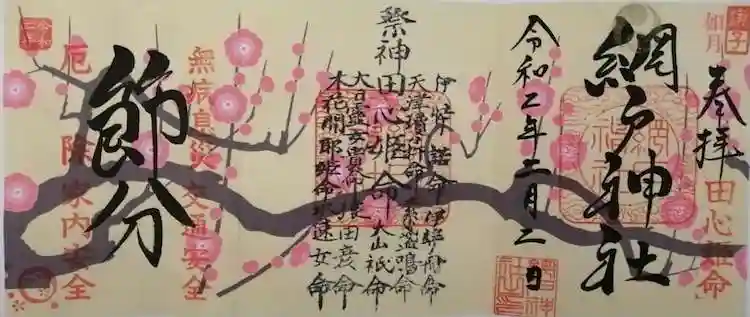 庚子
如月
奉拝
「田心姫命」
網戸神社
令和二年二月二日
祭神 田心姫命
伊弉諾命 伊弉冉命
素盞鳴命
大山祇命
猿田彦命
木花開耶姫命 水速女命
無病息災 交通安全
節分
厄除 家内安全